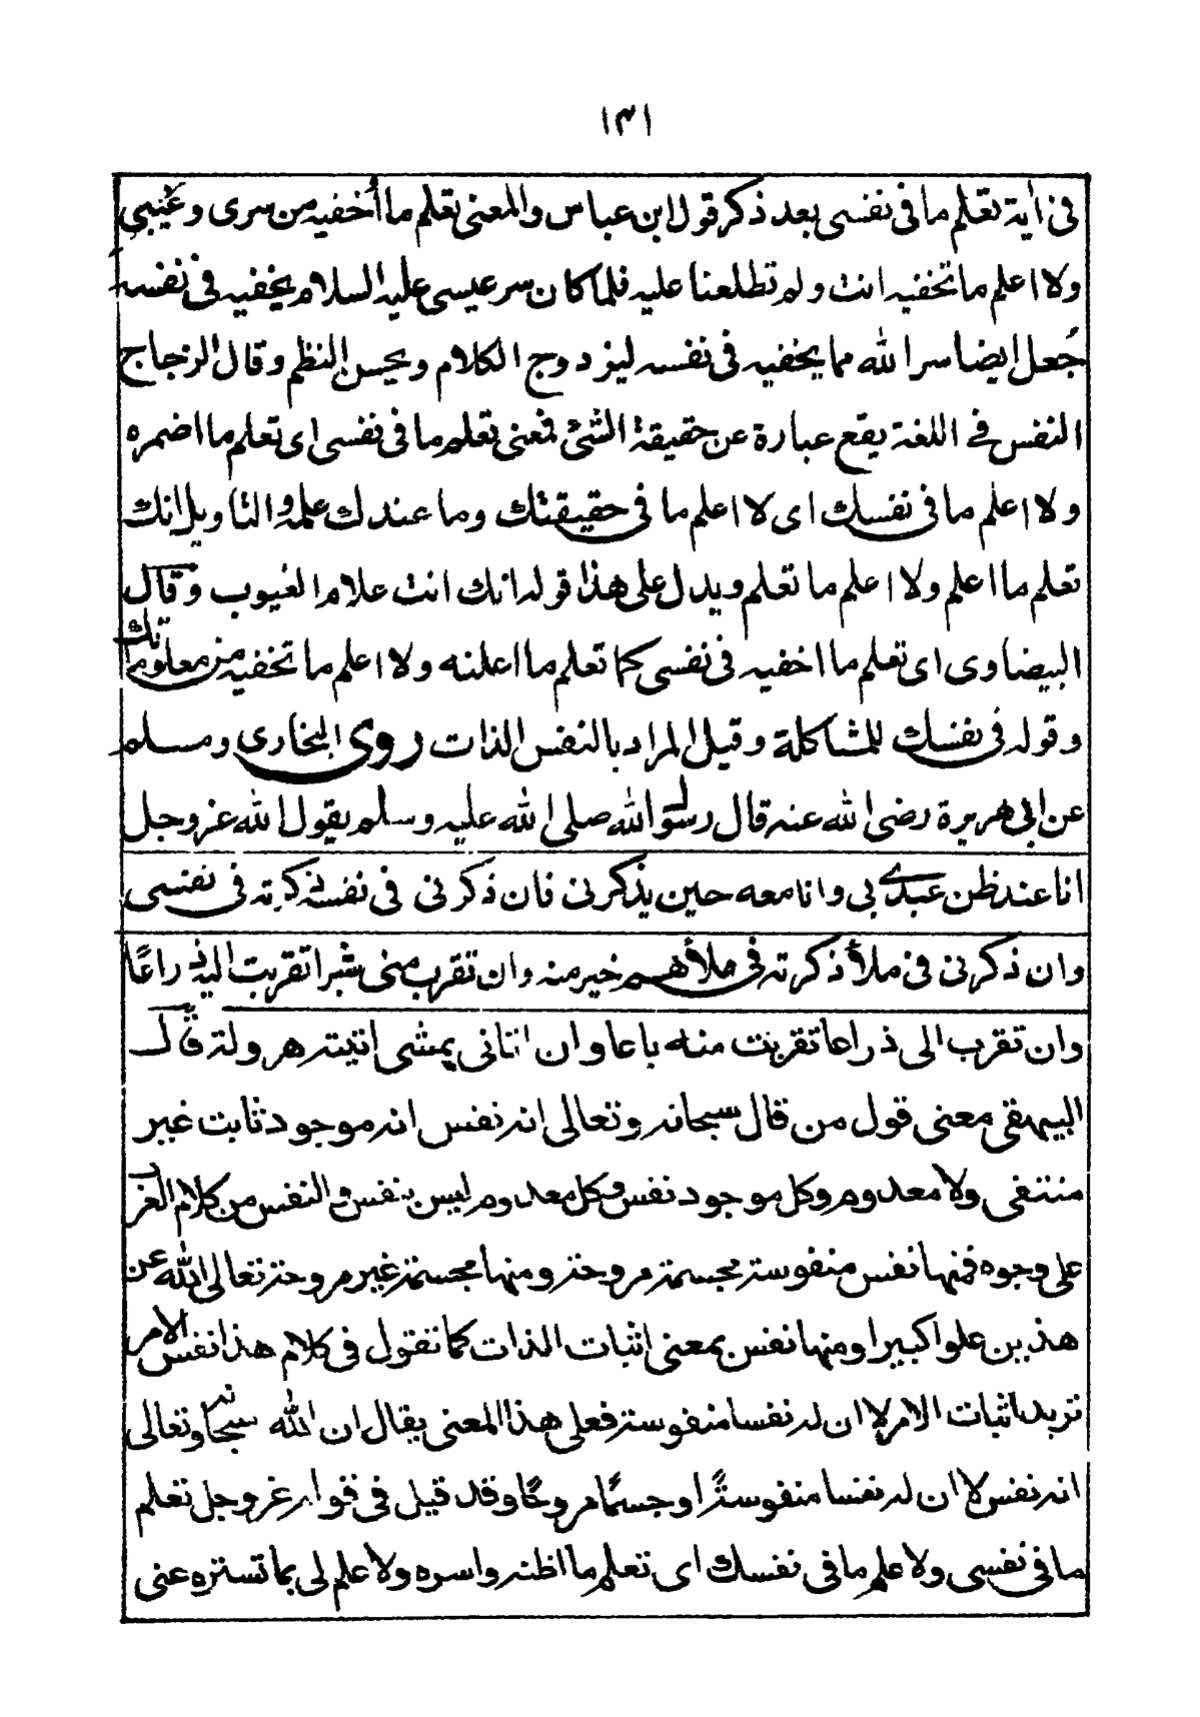 ١٣١
في اٰية تعلم ما في نفسى بعد ذكر قول ابن عباس والمعنى تعلم ما أخفيه من سرى وغيبي
ولا اعلم ما تخفيه انت ولم تطلعنا عليه فلما كان سر عيسى عليه السلام يخفيه في نفسه
جُعل ايضا سر الله مما يخفيه في نفسه ليزدوج الكلام ويحسن النظم وقال الزجاج
النفس في اللغة يقع عبارة عن حقيقة الشئ فمعنى تعلم ما في نفسى اى تعلم ما اضمره
ولا اعلم ما في نفسك اى لا اعلم ما في حقيقتك وما عندك علمه والتاويل انك
تعلم ما اعلم ولا اعلم ما تعلم ويدل على هذا قوله انك انت علام الغيوب وقال
البيضاوى اى تعلم ما اخفيه في نفسى كما تعلم ما اعلنه ولا اعلم ما تخفيه من معلوماتك
وقوله في نفسك للمشاكلة وقيل المراد بالنفس الذات روى البخارى ومسلم
عن ابي هريرة رضى الله عنه قال رسول الله صلى الله عليه وسلم يقول الله عز وجل
انا عند ظن عبدي بي وانا معه حين يذكرنى فان ذكرنى في نفسه ذكرته في نفسى
وان ذكرنى في ملأ ذكرته في ملأ هم خير منه وان تقرب منى شبرا تقربت اليه ذراعًا
وان تقرب الى ذراعا تقربت منه باعا وان اتانى يمشى اتيته هرولة قال
البيهقى معنى قول من قال سبحانه وتعالى انه نفس انه موجود ثابت غير
منتفى ولا معدوم وكل موجود نفس وكل معدوم ليس بنفس والنفس من كلام العرب
على وجوه فمنها نفس منفوسة مجسمة مروحة ومنها مجسمة غير مروحة تعالى الله عن
هذين علوا كبيرا ومنها نفس بمعنى اثبات الذات كما تقول في كلام هذا نفس الامر
تريد اثبات الامر لا ان له نفسا منفوسة فعلى هذا المعنى يقال ان الله سبحانه وتعالى
انه نفس لا ان له نفسا منفوسةً او جسمًا مروحًا وقد قيل في قوله عز وجل تعلم
ما في نفسي ولا علم ما في نفسك اى تعلم ما اظنه واسره ولا علم لى بما تستره عنى